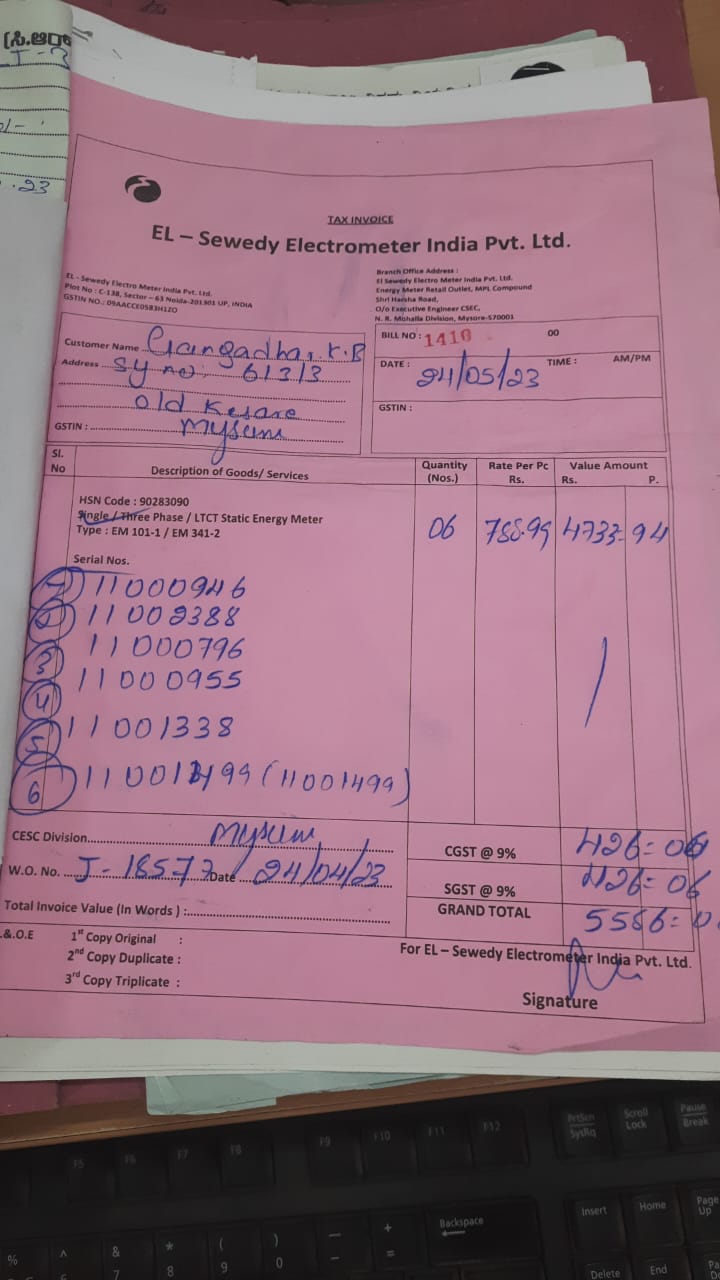 (ಸಿ.ಆರ್
J-3
0/-
.23
TAX INVOICE
EL – Sewedy Electrometer India Pvt. Ltd.
EL - Sewedy Electro Meter India Pvt. Ltd.
Plot No : C-138, Sector – 63 Noida-201301 UP, INDIA
GSTIN NO.: 09AACCE0583H1ZO
Branch Office Address :
El Sewedy Electro Meter India Pvt. Ltd.
Energy Meter Retail Outlet, MPL Compound
Shri Harsha Road,
O/o Executive Engineer CSEC,
N. R. Mohalla Division, Mysore-570001
Customer Name Gangadhar.K.B
Address Sy no: 613/3
old Kesare
GSTIN : Mysuru
BILL NO : 1410 00
DATE : 24/05/23 TIME : AM/PM
GSTIN :
Sl. No Description of Goods/ Services Quantity (Nos.) Rate Per Pc Rs. Value Amount Rs. P.
HSN Code : 90283090
Single / Three Phase / LTCT Static Energy Meter
Type : EM 101-1 / EM 341-2
06 788.99 4733=94
Serial Nos.
1 11000946
2 11002388
3 11000796
4 11000955
5 11001338
6 (11001499)
CESC Division Mysuru
W.O. No. J-18577 Date 24/04/23
Total Invoice Value (In Words ) :
CGST @ 9% 426=06
SGST @ 9% 426=06
GRAND TOTAL 5586=0
.&.O.E 1st Copy Original :
2nd Copy Duplicate :
3rd Copy Triplicate :
For EL – Sewedy Electrometer India Pvt. Ltd.
Signature
F5 F6 F7 F8 F9 F10 F11 F12 PrtScn SysRq Scroll Lock Pause Break
Backspace Insert Home Page Up
% ^ & * ( ) — + 
6 7 8 9 0 - =
Delete End